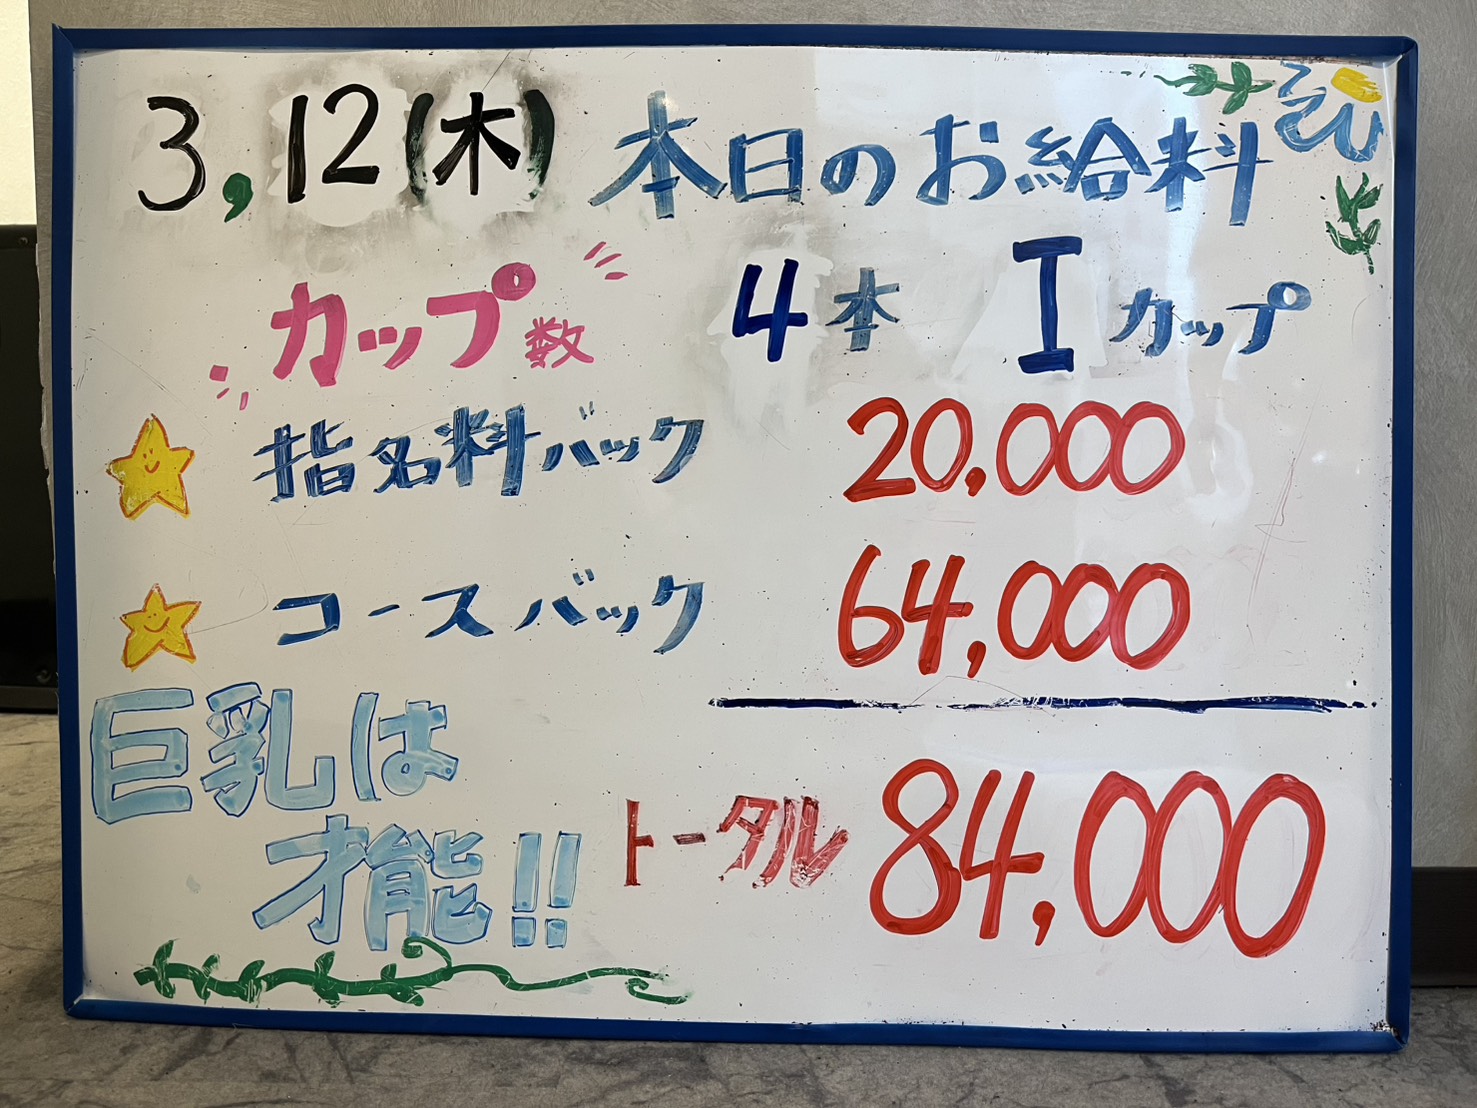 3,12(木) 本日のお給料
カップ数 4本 Iカップ
指名料バック 20,000
コースバック 64,000
巨乳は
才能!!
トータル 84,000